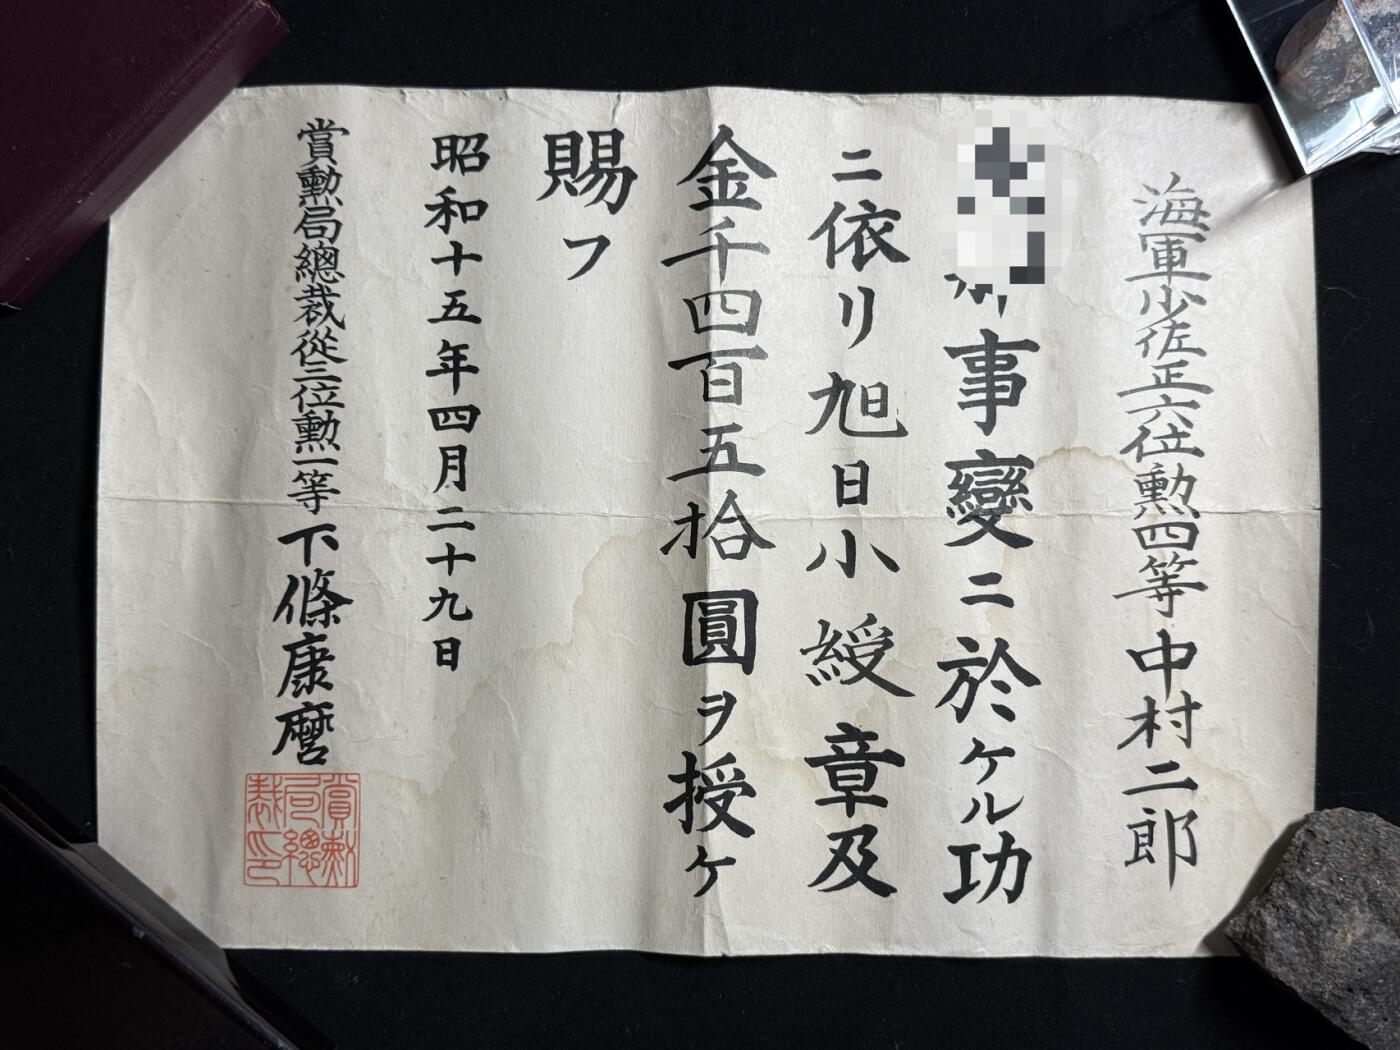 海軍少佐正六位勲四等中村二郎
事變ニ於ケル功
ニ依リ旭日小綬章及
金千四百五拾圓ヲ授ケ
賜フ
昭和十五年四月二十九日
賞勲局總裁従三位勲一等下條康麿
賞勲局總裁印